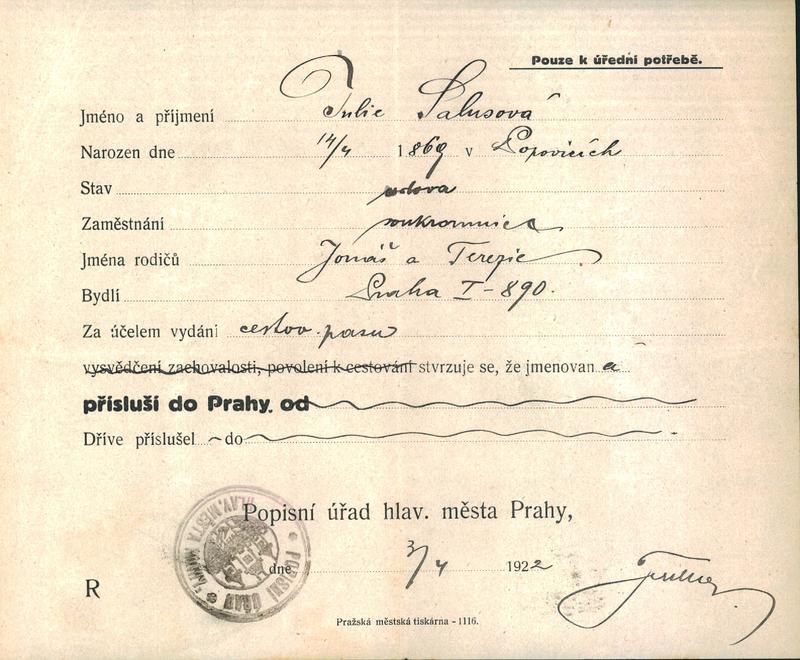 Pouze k úřední potřebě.
Jméno a příjmení Julie Šalusová
Narozen dne 14/4 1869 v Popovicích
Stav vdova
Zaměstnání soukromnice
Jména rodičů Jonáš a Terezie
Bydlí Praha I-890.
Za účelem vydání cestov. pasu
vysvědčení zachovalosti, povolení k cestování stvrzuje se, že jmenovan á
přísluší do Prahy, od
Dříve příslušel do
Popisní úřad hlav. města Prahy,
dne 3/4 1922
R
POPISNÍ ÚŘAD HLAV. MĚSTA PRAHY
Pražská městská tiskárna - 1116.